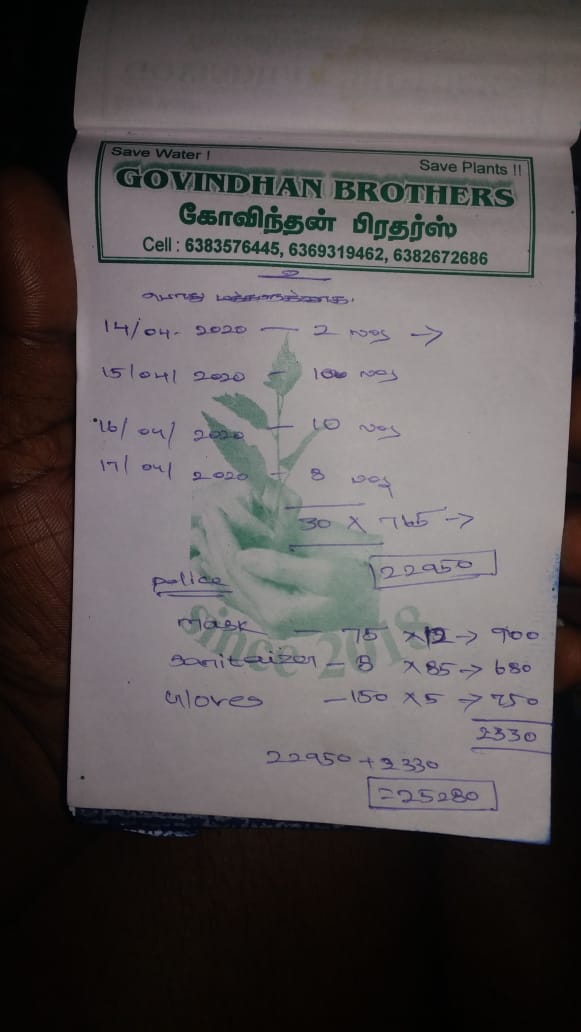 Save Water !
Save Plants !!
GOVINDHAN BROTHERS
கோவிந்தன் பிரதர்ஸ்
Cell : 6383576445, 6369319462, 6382672686
14/04- 2020 — 2 →
15/04/ 2020 - 10
16/ 04/ 2020 — 10
17/ 04/ 2020 - 8
30 X 765 →
22950
police
mask — 75 x12 → 900
sanitaizer - 8 x 85 → 680
Gloves - 150 x 5 → 750
2330
22950 + 2330
= 25280
since 2018